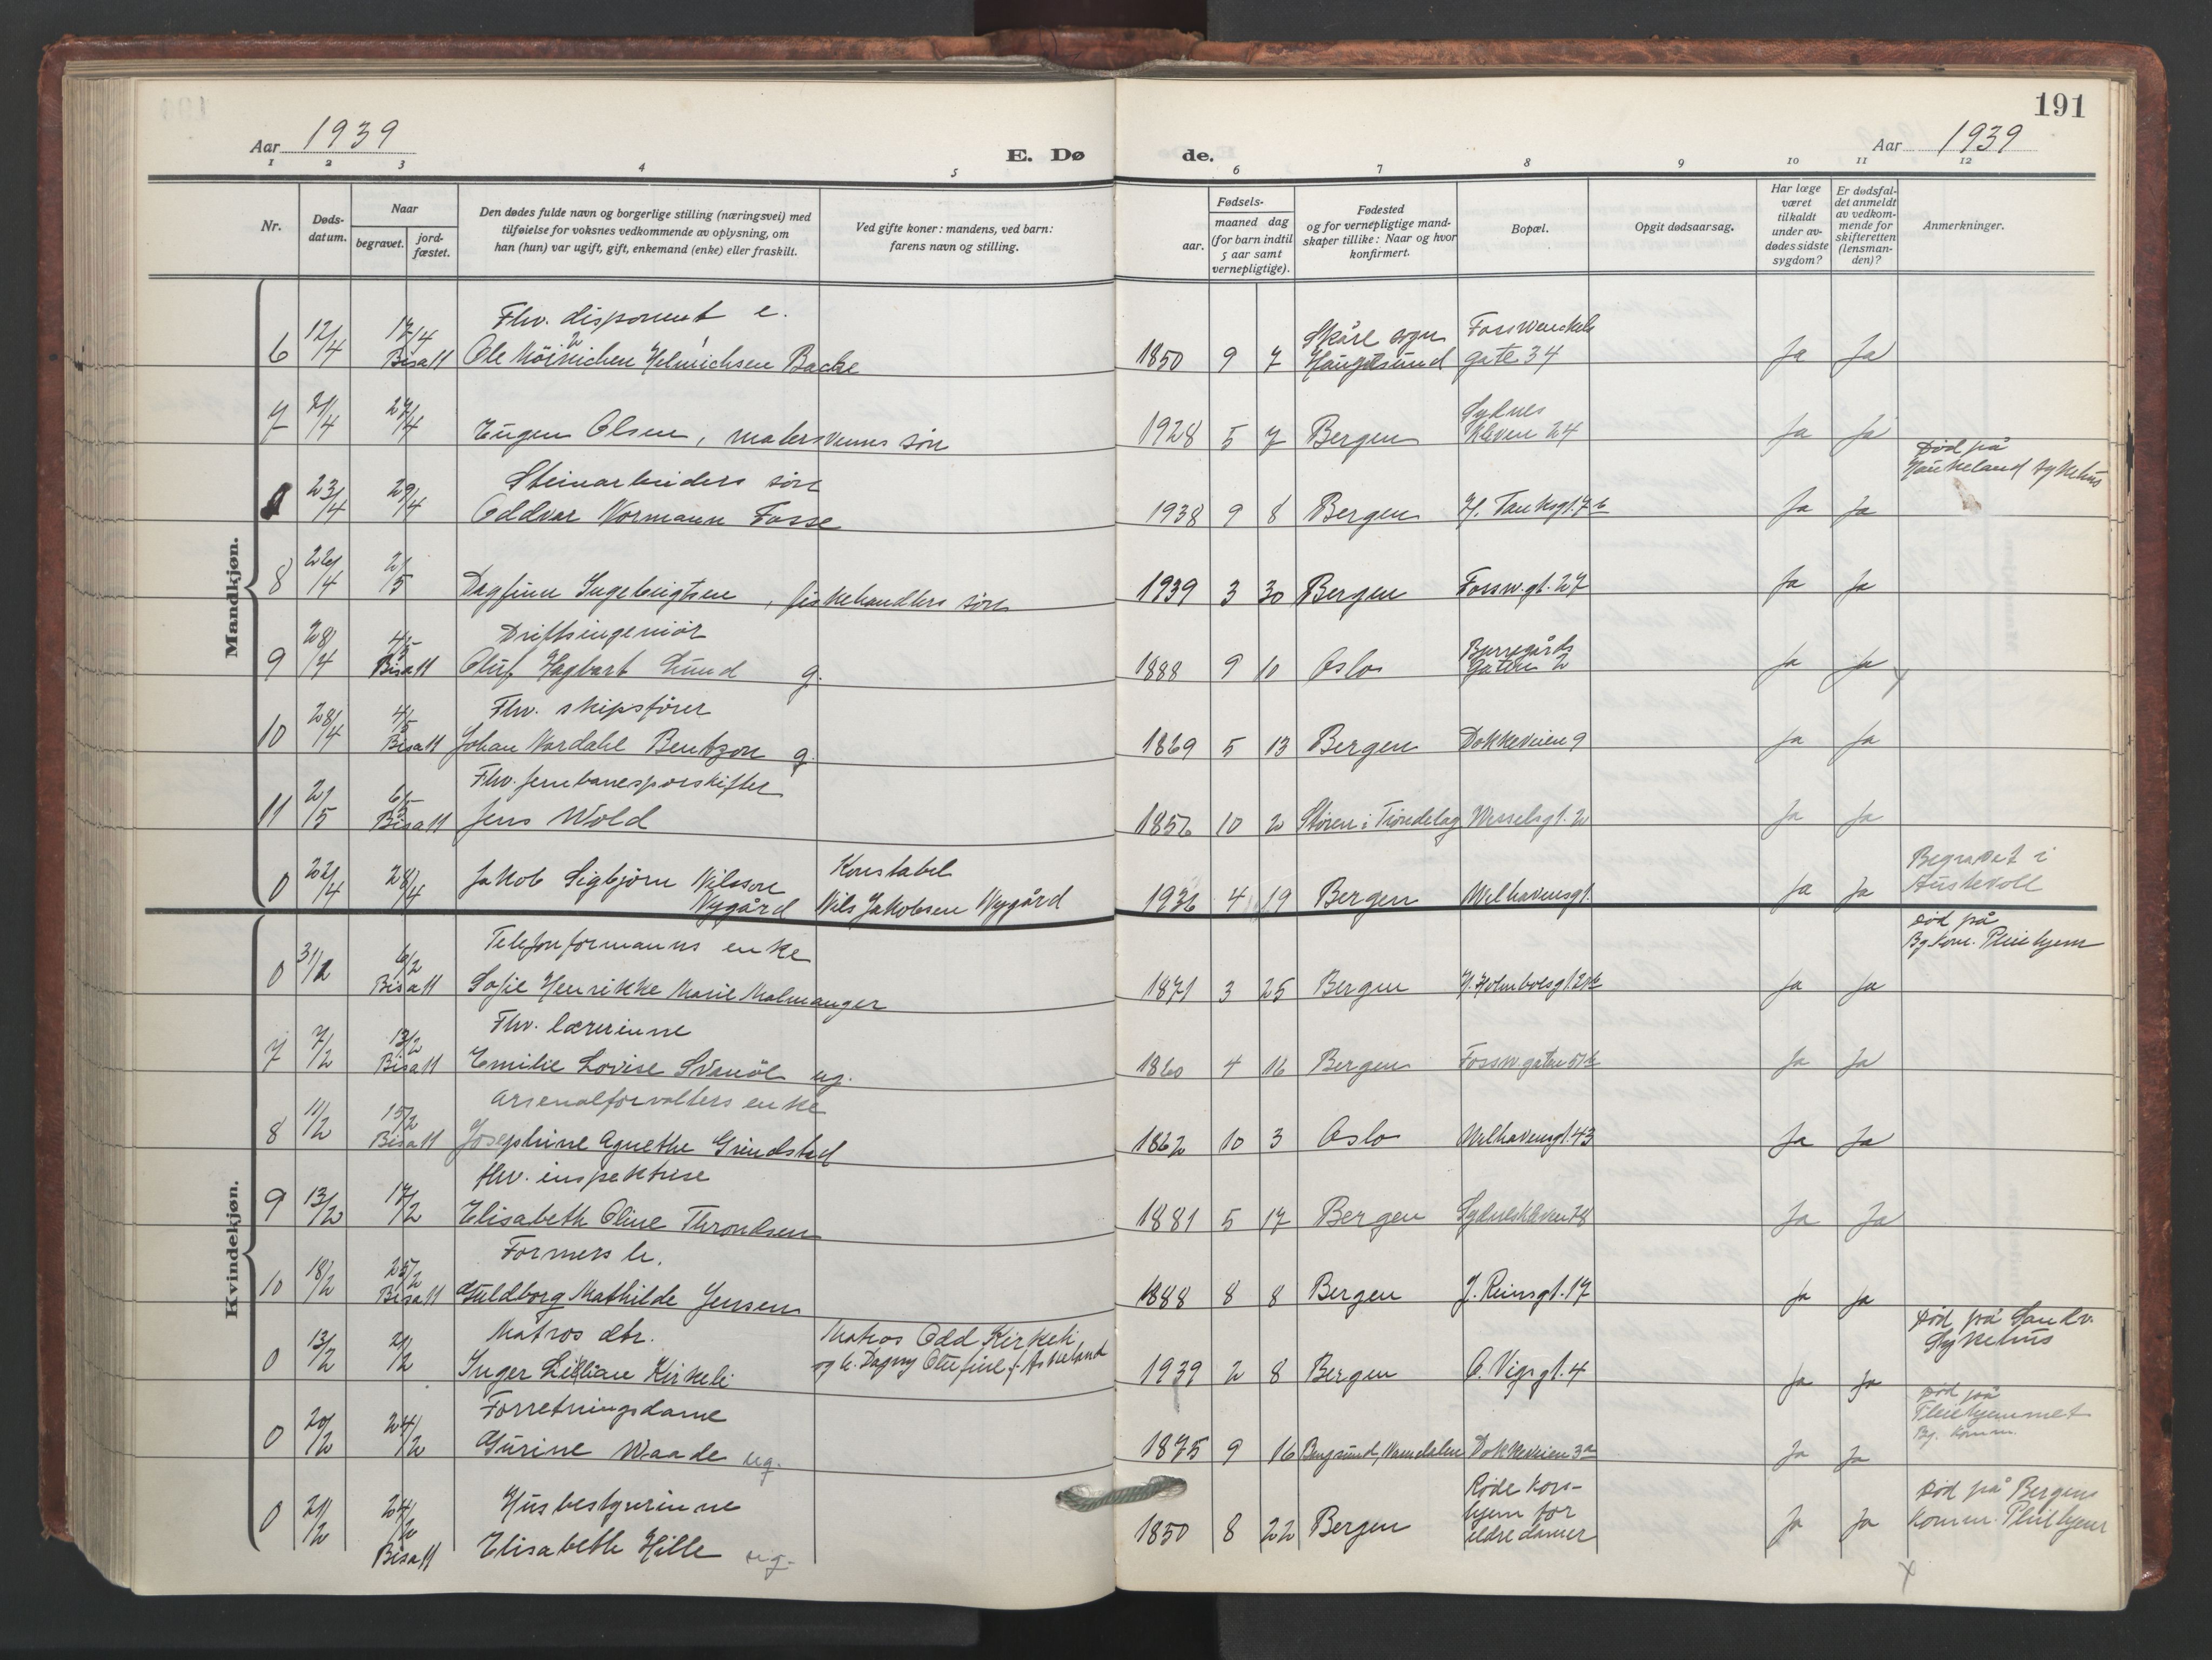 191
Aar 1939
E. Dø de.
Aar 1939
1 2 3 4 5 6 7 8 9 10 11 12
Nr.
Døds-
datum.
Naar
begravet.
jord-
fæstet.
Den dødes fulde navn og borgerlige stilling (næringsvei) med
tilføielse for voksnes vedkommende av oplysning, om
han (hun) var ugift, gift, enkemand (enke) eller fraskilt.
Ved gifte koner: mandens, ved barn:
farens navn og stilling.
Fødsels-
aar.
maaned dag
(for barn indtil
5 aar samt
vernepligtige).
Fødested
og for vernepligtige mand-
skaper tillike: Naar og hvor
konfirmert.
Bopæl.
Opgit dødsaarsag.
Har læge
været
tilkaldt
under av-
dødes sidste
sygdom?
Er dødsfal-
det anmeldt
av vedkom-
mende for
skifteretten
(lensman-
den)?
Anmerkninger.
Mandkjøn.
Fhv. disponent e.
6 12/4 17/4 Bisatt Ole Helmichsen Backe 1850 9 7 Skåre sogn Haugesund Fosswinckels gate 34 Ja Ja
7 21/4 27/4 Eugen Olsen, malersvenns søn 1928 5 7 Bergen Sydnes kleven 24 Ja Ja
Steinarbeiders søn
23/4 29/4 Oddvar Normann Fosse 1938 9 8 Bergen H. Tanksgt. 7b Ja Ja Død på Haukeland sykehus
8 26/4 2/5 Dagfinn Ingebrigtsen, fiskehandlers søn 1939 3 30 Bergen Fossw.gt. 27 Ja Ja
Driftsingeniør
9 28/4 4/5 Bisatt Oluf Hagbart Lund g. 1888 9 10 Oslo Bjerregårds Gaten 2 Ja Ja
Fhv. skipsfører
10 28/4 4/5 Bisatt Johan Nordahl Bentzon g. 1869 5 13 Bergen Dokkeveien 9 Ja Ja
Fhv. jernbanesporskifter
11 2/5 6/5 Bisatt Jens Wold 1856 10 2 Støren i Trøndelag Wesselsgt. 2 Ja Ja
0 22/4 28/4 Jakob Sigbjørn Nilsson Nygård Konstabel Nils Jakobsen Nygård 1936 4 19 Bergen Welhavensgt. Ja Ja Begravet i Austevoll
Kvindekjøn.
Telefonformanns enke
0 31/1 6/2 Bisatt Sofie Henrikke Marie Malmanger 1871 3 25 Bergen Ja Ja Død på Bg. Kom. Pleiehjem
Fhv. lærerinne
7 7/2 13/2 Bisatt Emilie Lovise Svanøe ug. 1860 4 16 Bergen Ja Ja
Arsenalforvalters enke
8 11/2 15/2 Bisatt Josephine Agnethe Grindstad 1862 10 3 Oslo Welhavensgt. 43 Ja Ja
fhv. inspektrise
9 13/2 17/2 Elisabeth Oline Throndsen 1881 5 17 Bergen Sydneskleven 28 Ja Ja
Formers h.
10 18/2 25/2 Bisatt Guldborg Mathilde Jensen 1888 8 8 Bergen J. Reinsgt. 17 Ja Ja
Matros dtr.
0 13/2 21/2 Inger Lillian Kirkeli Matros Odd Kirkeli og h. Dagny f. Askeland 1939 2 8 Bergen O. Vigsgt. 4 Ja Ja Død på Sandv. Sykehus
Forretningsdame
0 20/2 24/2 Gurine Waade ug. 1875 9 16 Bangsund, Namdalen Dokkeveien 3a Ja Ja Død på Pleiehjemmet Bg. Komm.
Husbestyrerinne
0 21/2 24/2 Bisatt Elisabeth Hille ug. 1850 8 22 Bergen Røde Kors- hjem for eldre damer Ja Ja Død på Bergens Komm. Pleiehjem